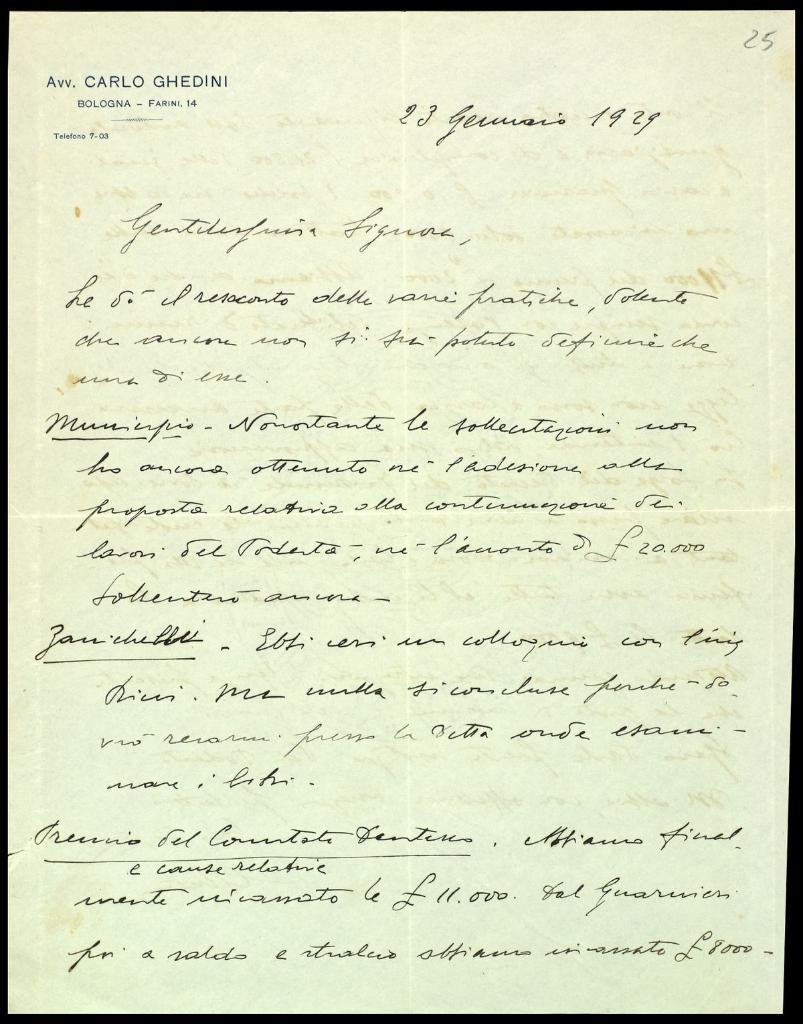 25
Avv. CARLO GHEDINI
BOLOGNA - FARINI, 14
Telefono 7-03
23 Gennaio 1929
Gentilissima Signora,
Le dò il resoconto delle varie pratiche, dolente
che ancora non si sia potuto definire che
una di esse.
Municipio - Nonostante le sollecitazioni non
ho ancora ottenuto nè l'adesione alla
proposta relativa alla continuazione dei
lavori del Podestà, nè l'acconto di £ 20.000
Solleciterò ancora -
Zanichelli - Ebbi ieri un colloquio con l'ing
. Ma nulla si concluse perchè do-
vrò recarmi presso la Ditta onde esami-
nare i libri -
Premio del Comitato Dantesco. Abbiamo final-
e cause relative
mente incassato le £ 11.000. Dal Guarnieri
poi a saldo e stralcio abbiamo incassato £ 8000 -